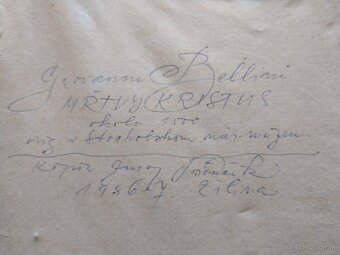 Giovanni Bellini
MŔTVY KRISTUS
okolo 1500
orig. v Stocholmskom nár. múzeu.
Kópia
1986-7 Žilina